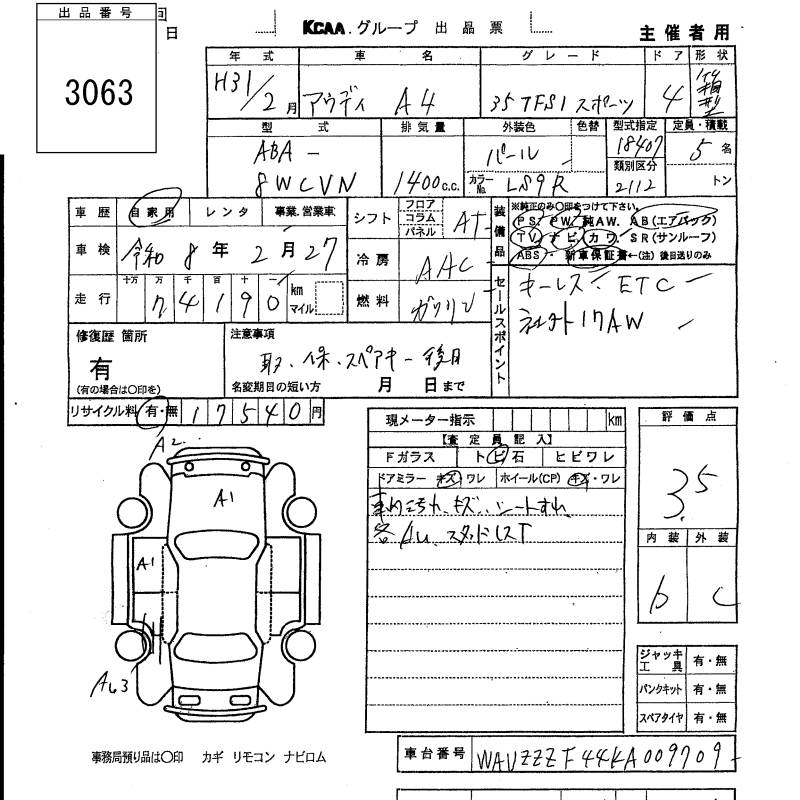 出品番号
回
日
3063
KCAA.グループ 出品票
主催者用
年式 車名 グレード ドア 形状
H31/2月 アウディ A4 35TFSI スポーツ 4 箱型
型式 排気量 外装色 色替 型式指定 定員・積載
ABA- 8WCVN 1400c.c. パール カラーNo. L89R 18407 5名
類別区分 2112 トン
車歴 自家用 レンタ 事業.営業車
シフト フロア コラム パネル AT
装備品 ※純正のみ〇印をつけて下さい。
PS. PW. 純AW. AB(エアバック)
TV. ナビ. カワ. SR(サンルーフ)
ABS・ 新車保証書←(注) 後日送りのみ
車検 令和 8年 2月27
冷房 AAC
走行 十万 万 千 百 十 一 74190 km マイル
燃料 ガソリン
セールスポイント
キーレス・ETC
社外17AW
修復歴 箇所
有
(有の場合は〇印を)
注意事項
取・保・スペアキー後日
名変期日の短い方 月 日まで
リサイクル料 有・無 17540円
現メーター指示 km
【査定員記入】
Fガラス トビ石 ヒビワレ
ドアミラー キズ ワレ ホイール(CP) キズ・ワレ
車内汚れ キズ、シートすれ
各AU スタッドレスT
評価点
3.5
内装 外装
b C
A2
A1
A1
AU3
ジャッキ工具 有・無
パンクキット 有・無
スペアタイヤ 有・無
事務局預り品は〇印 カギ リモコン ナビロム
車台番号 WAUZZZF44KA009709